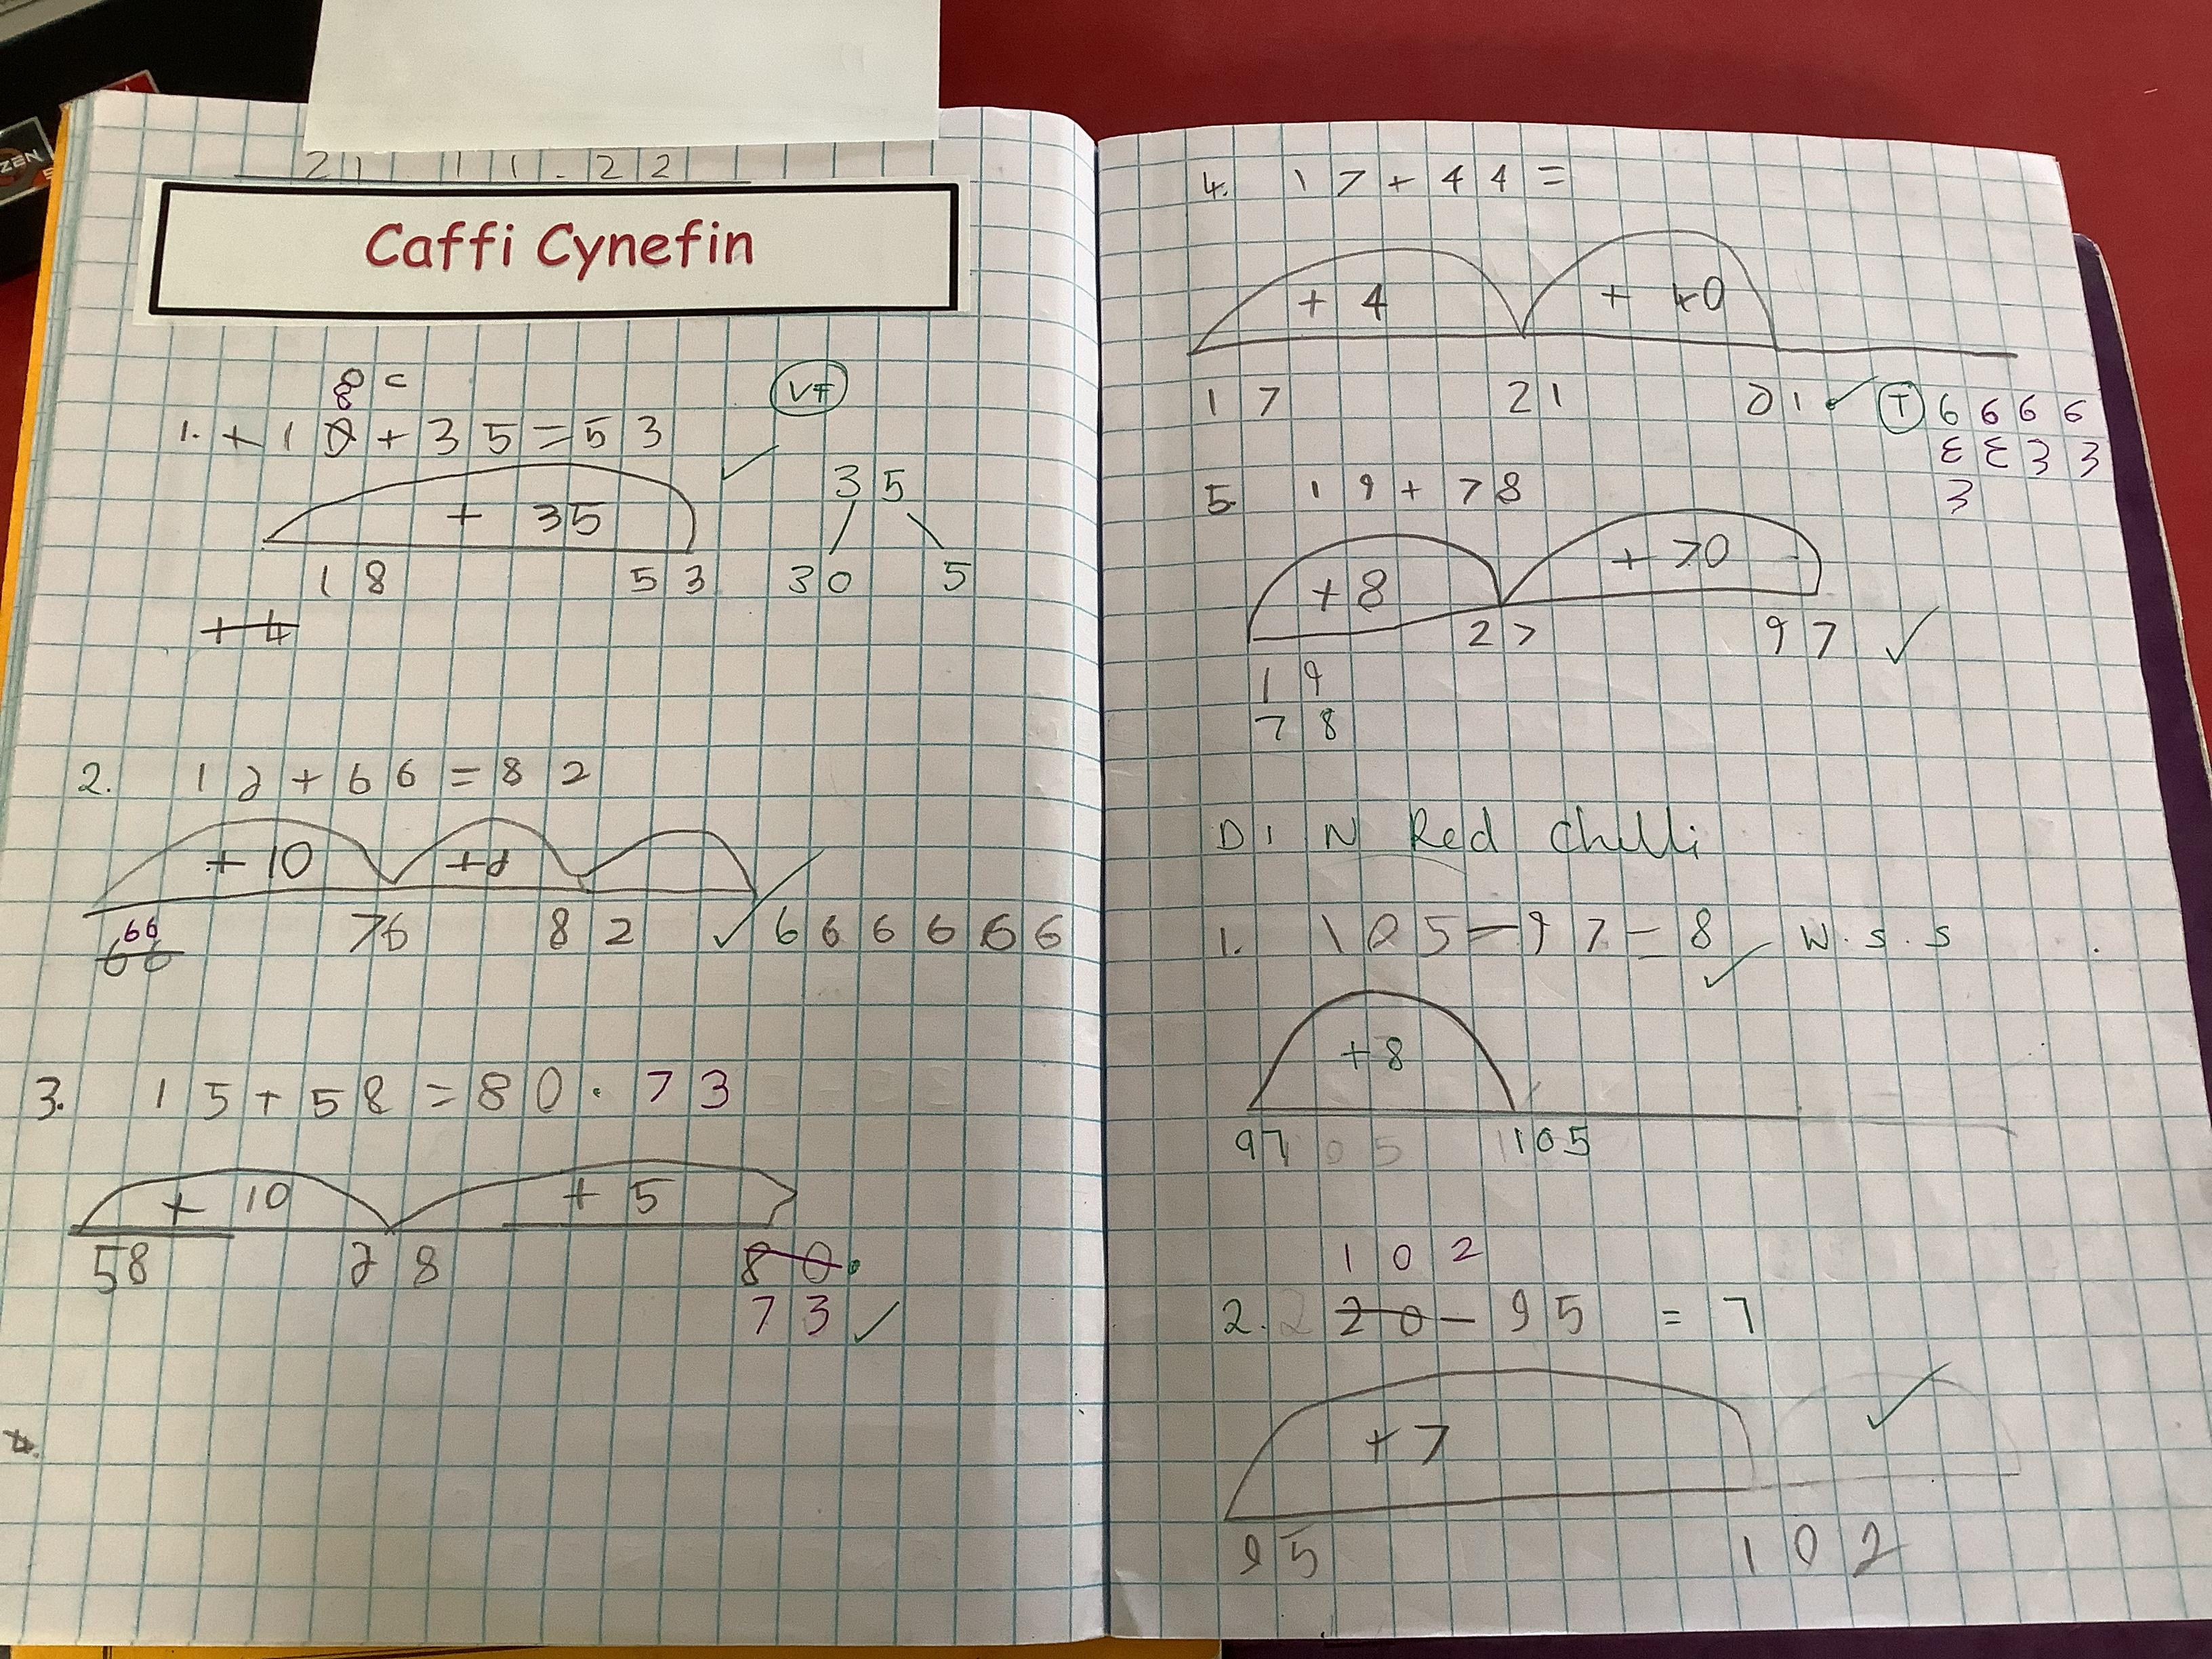 ZEN
21.11.22
Caffi Cynefin
8
1. + 1 0 + 35 = 53
VF
+ 35
18 53
+4
35
30 5
2. 12 + 66 = 82
+ 10 +
66
66 76 82
6 6 6 6 6 6
3. 15 + 58 = 80 . 73
+ 10 + 5
58 28 80
73
4.
4. 17 + 44 =
+ 4 + 40
17 21 01
T 6 6 6 6
Ɛ Ɛ 3 3
3
5. 19 + 78
+8 + 70
19 27 97
78
D I N Red Chilli
1. 105 - 97 = 8 W.S.S
+8
97 105
102
2. 20 - 95 = 7
+7
95 102